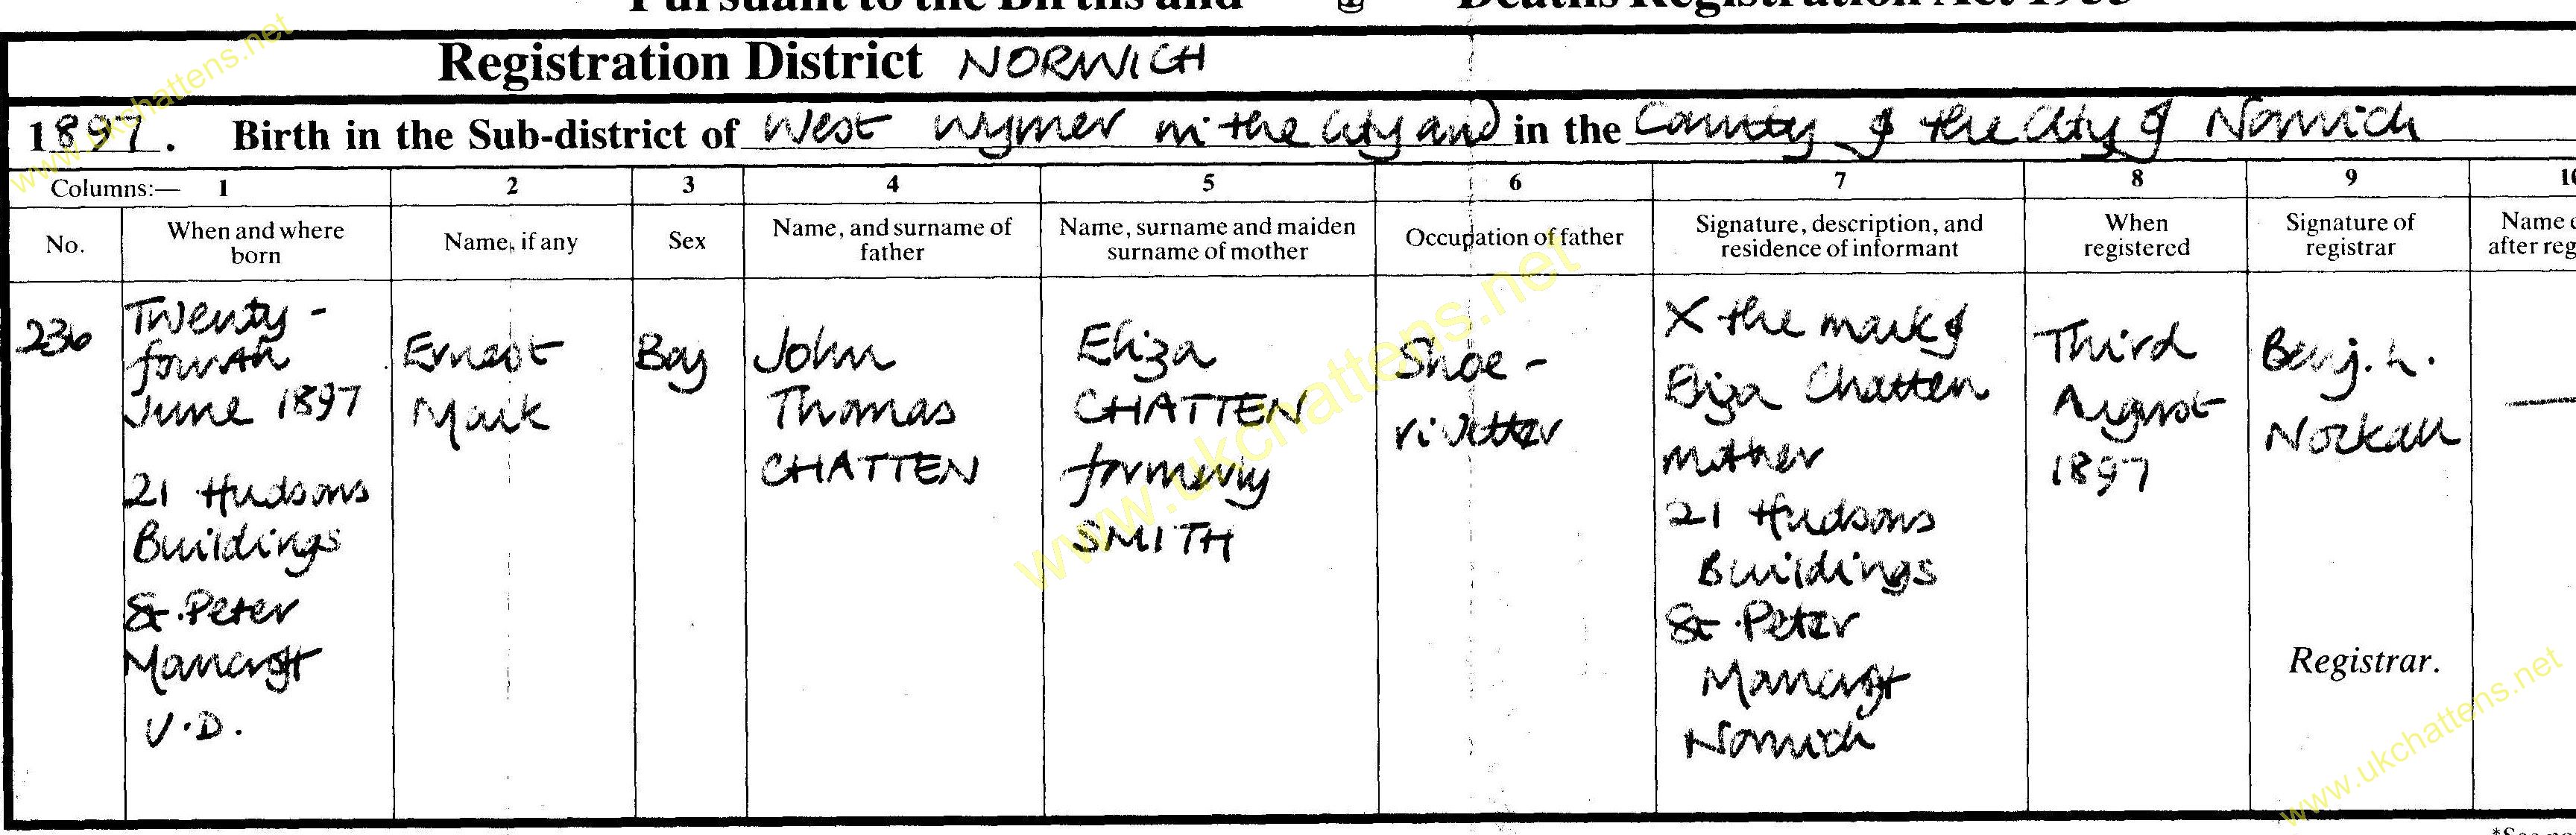 Pursuant to the Births and Deaths Registration Act 1953
Registration District NORWICH
1897. Birth in the Sub-district of West Wymer in the City and in the County of the City of Norwich
Columns:— 1 2 3 4 5 6 7 8 9 10
No.
When and where
born
Name, if any
Sex
Name, and surname of
father
Name, surname and maiden
surname of mother
Occupation of father
Signature, description, and
residence of informant
When
registered
Signature of
registrar
Name
after reg
236
Twenty-
fourth
June 1897
21 Hudsons
Buildings
St. Peter
Mancroft
U.D.
Ernest
Mark
Boy
John
Thomas
CHATTEN
Eliza
CHATTEN
formerly
SMITH
Shoe-
rivetter
X the mark of
Eliza Chatten
mother
21 Hudsons
Buildings
St. Peter
Mancroft
Norwich
Third
August
1897
Benj. L.
Registrar.
www.ukchattens.net
www.ukchattens.net
www.ukchattens.net